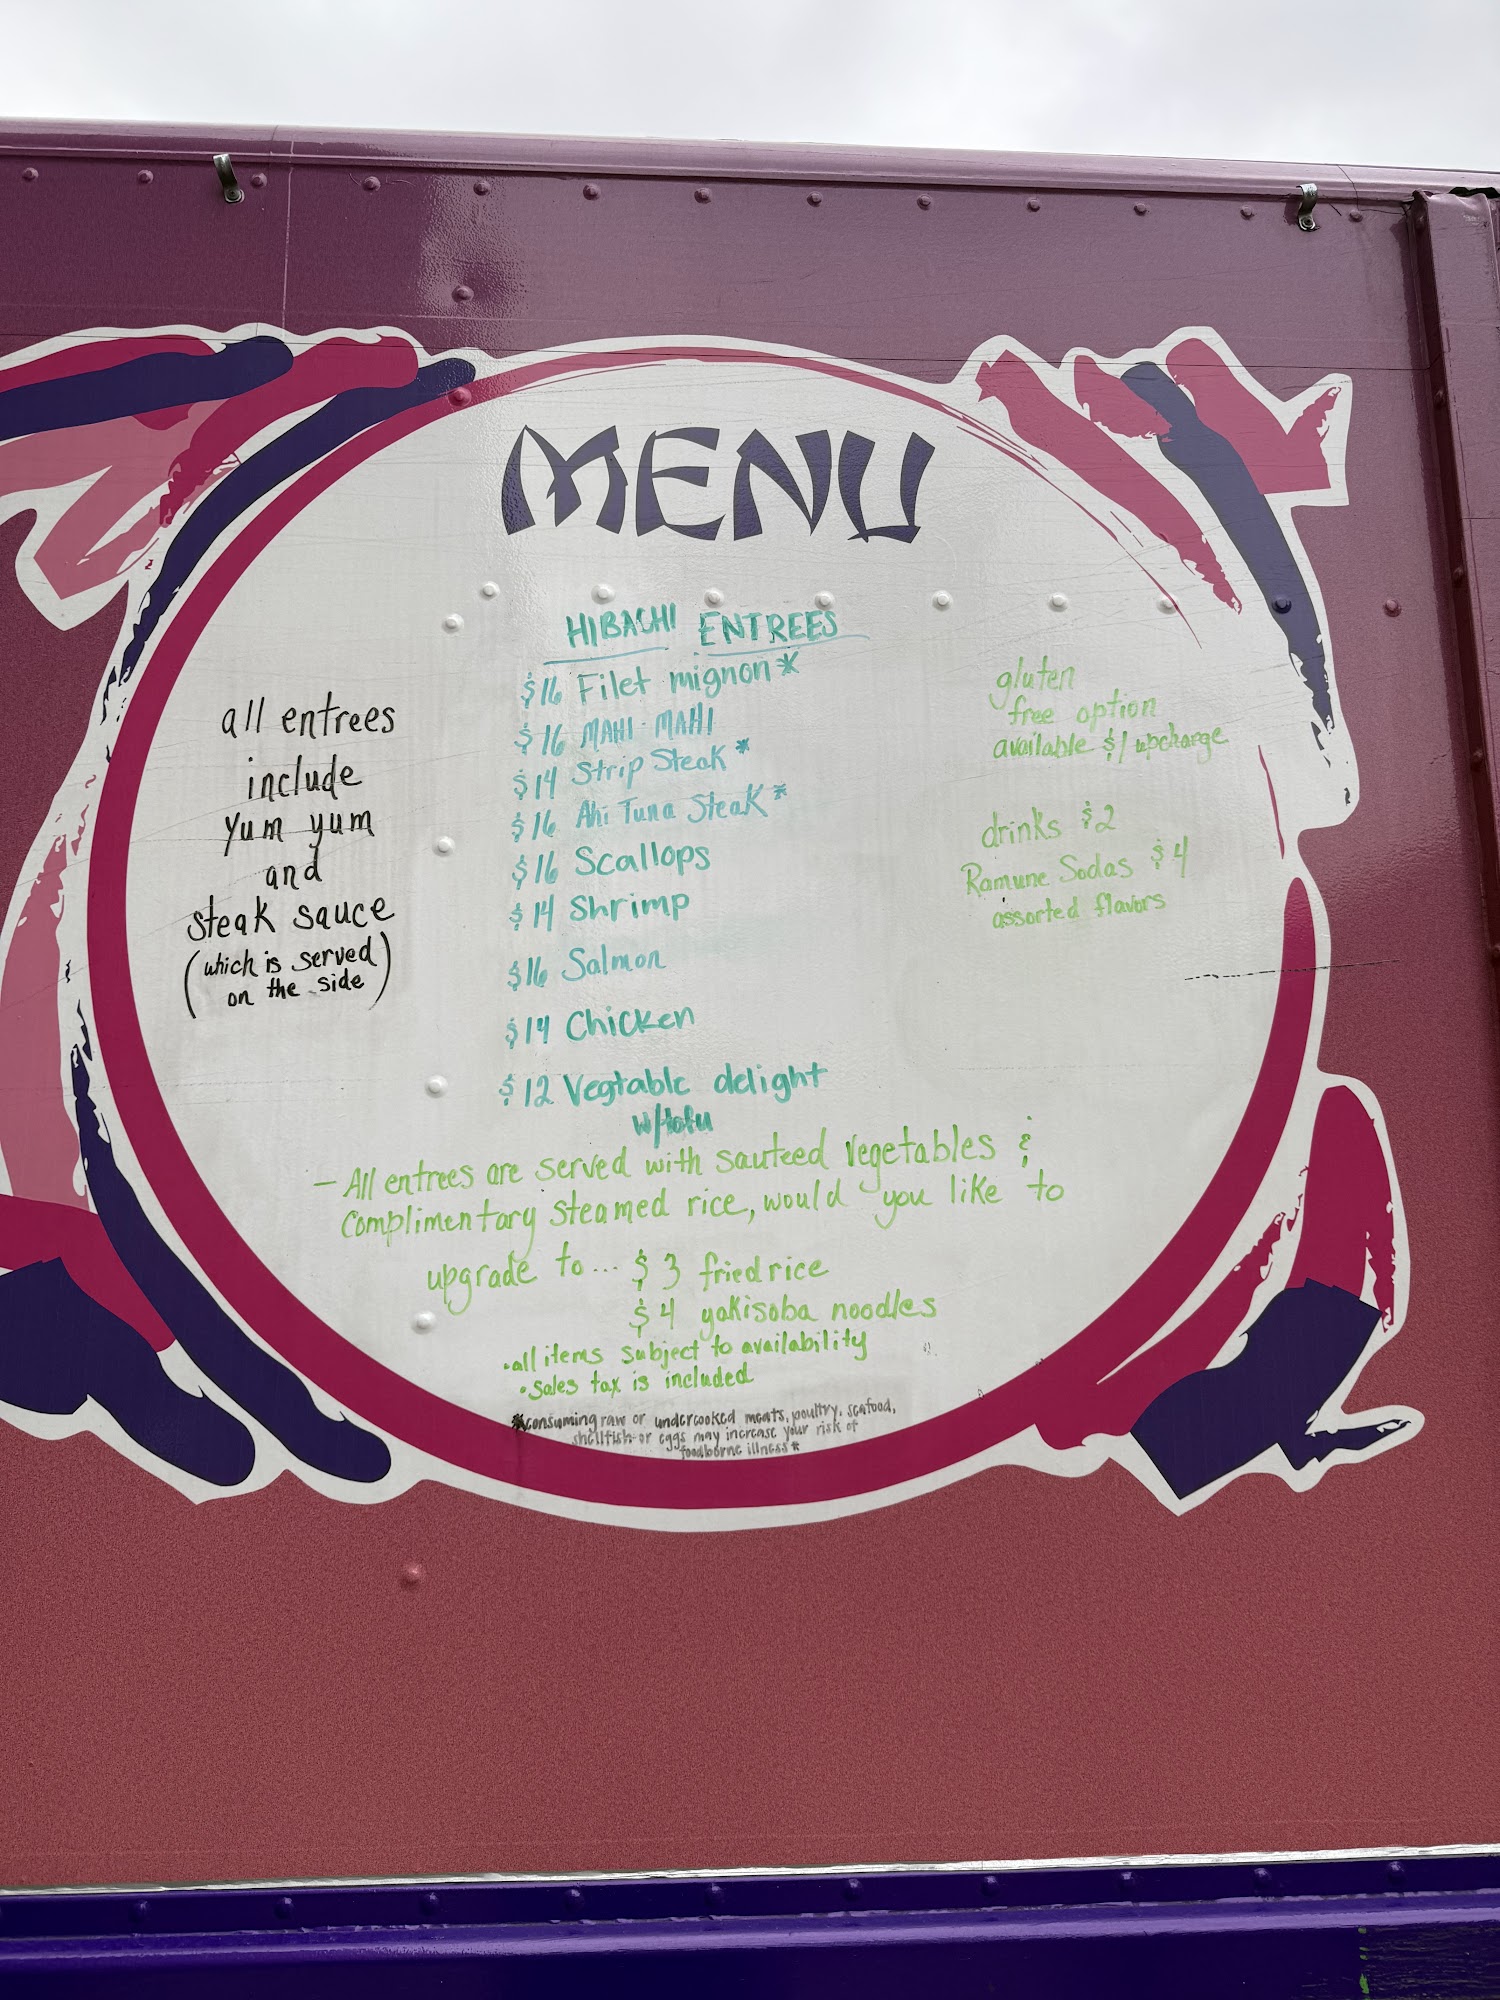 MENU
all entrees
include
Yum yum
and
steak sauce
(which is served
on the side)
HIBACHI ENTREES
$16 Filet mignon*
$16 MAHI-MAHI
$14 Strip Steak*
$16 Ahi Tuna Steak*
$16 Scallops
$14 Shrimp
$16 Salmon
$14 Chicken
$12 Vegtable delight
w/tofu
gluten
free option
available $1 upcharge
drinks $2
Ramune Sodas $4
assorted flavors
- All entrees are served with sauteed vegetables &
Complimentary steamed rice, would you like to
upgrade to... $3 fried rice
$4 yakisoba noodles
•all items subject to availability
•sales tax is included
*consuming raw or undercooked meats, poultry, seafood,
shellfish or eggs may increase your risk of
foodborne illness*